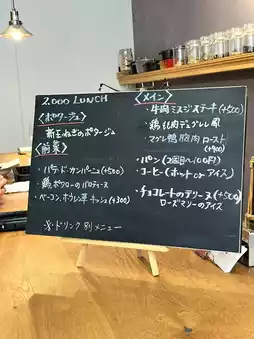 2,000 LUNCH
〈ポタージュ〉
新玉ねぎのポタージュ
〈前菜〉
・パテ・ド・カンパーニュ(+500)
・鶏 のバロティーヌ
・ベーコン、ホウレン草 キッシュ(+300)
※ドリンク 別メニュー
〈メイン〉
・牛肉ミスジステーキ(+500)
・鶏モモ肉ディアブル風
・マグレ鴨胸肉 ロースト
(+900)
・パン(2回目〜100円)
・コーヒー(ホット or アイス)
・チョコレートのテリーヌ(+500)
ローズマリーのアイス